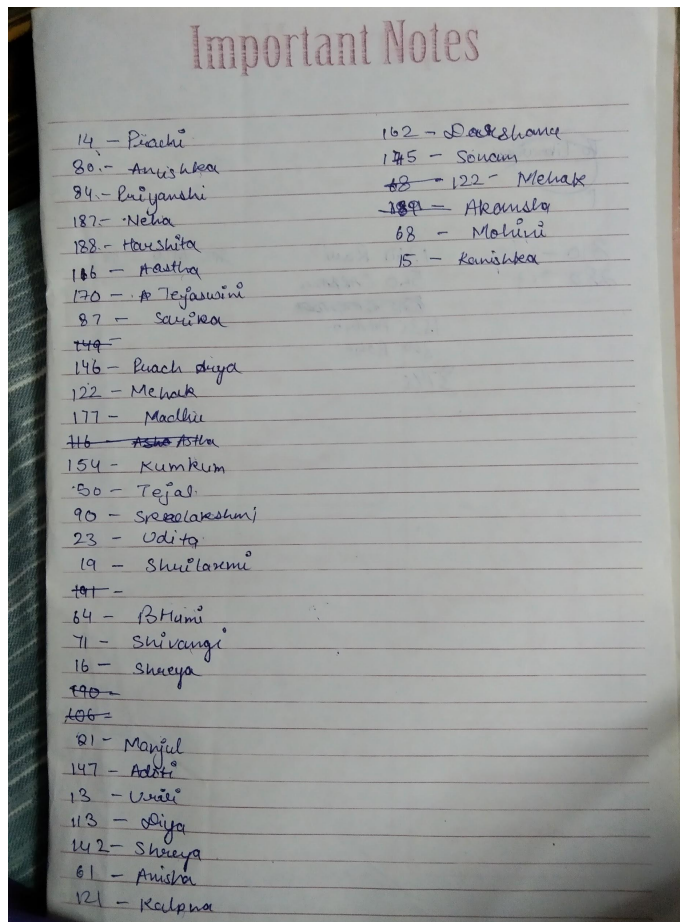 Important Notes
14 - Prachi
80 - Anishka
84 - Priyanshi
187 - Neha
188 - Harshita
116 - Aastha
170 - Tejaswini
87 - Sarika
149 -
146 - Prach Priya
122 - Mehak
177 - Madhu
116 - Astha
154 - Kumkum
50 - Tejal
90 - Sreelakshmi
23 - Udita
19 - Shrilaxmi
191 -
64 - BHumi
71 - Shivangi
16 - Shreya
190 -
106 =
21 - Manjul
147 - Aditi
13 - Urvi
113 - Diya
142 - Shreya
61 - Anisha
121 - Kalpna
162 - Darkshana
175 - Sonam
68 - 122 - Mehak
189 - Akansha
68 - Mohini
15 - Kanishka